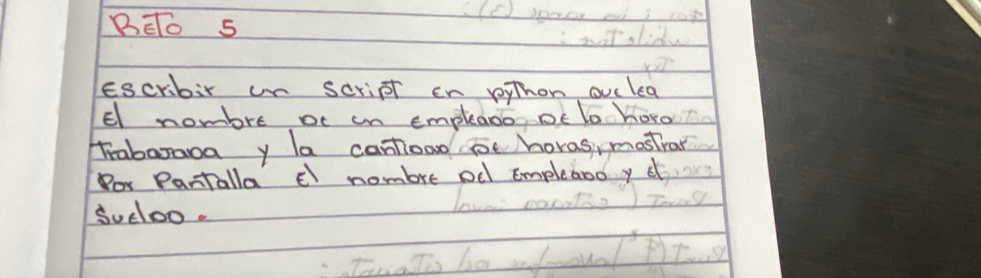 RETO 5
Escribir un script en python que lea
El nombre de un empleado, de la hora
Trabajada y la cantidad de horas, mostrar
Por Pantalla El nombre del Empleado y el
Sueldo.